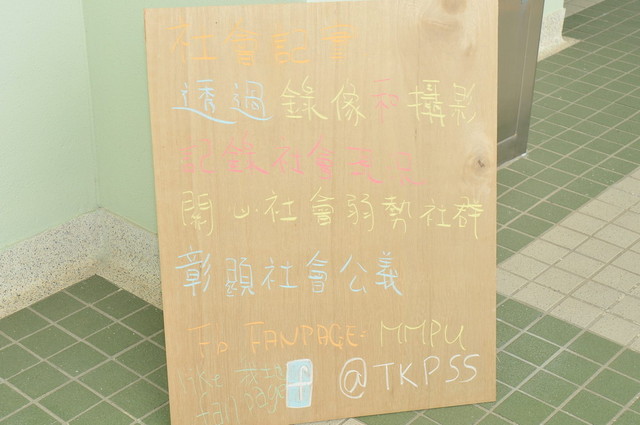 社會記者
透過錄像和攝影
記錄社會表見
關心社會弱勢社群
彰顯社會公義
Fb FANPAGE: MMPU
like
fan page f @TKPSS